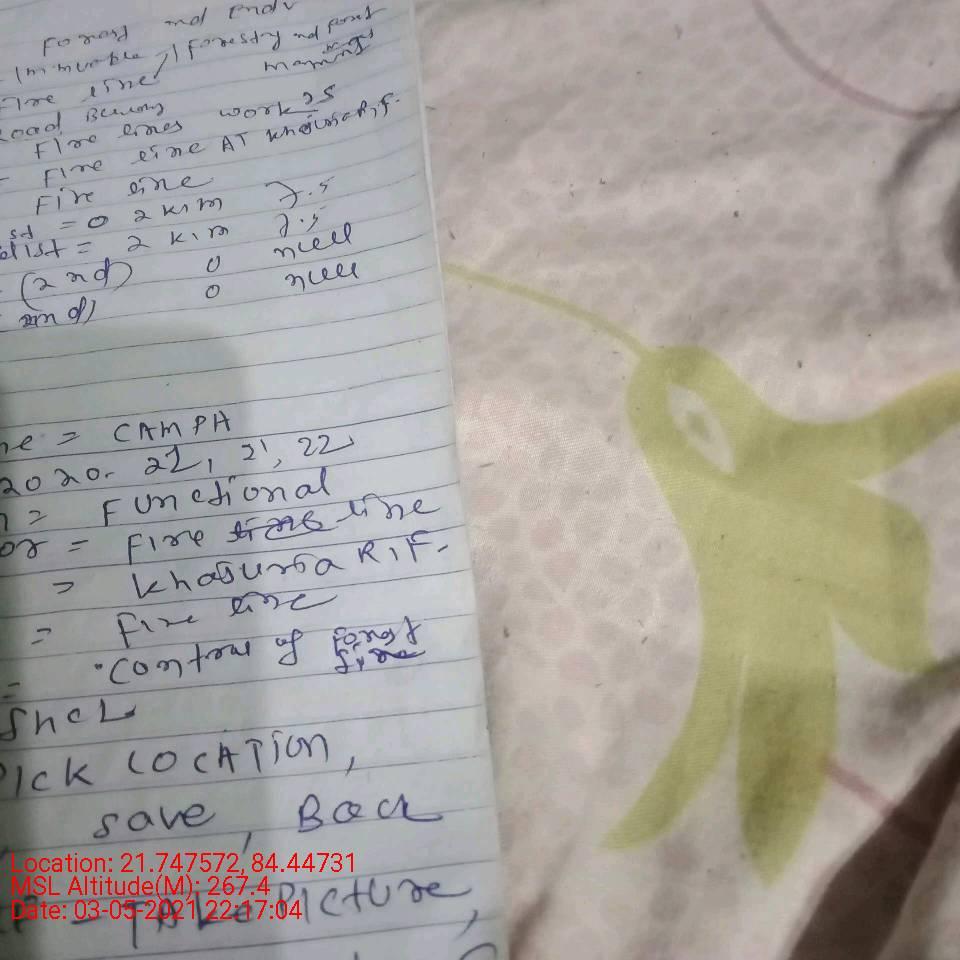 Forest and
Forestry and Forest
Fire line
Road
Fire lines works
Fire line AT Khajuria R.F.
Fire line
st = 0 2 kim 7.5
list = 2 kim 7.5
(2nd) 0 null
2nd) 0 null
ne = CAMPA
2020-21, 21, 22
n = Functional
or = Fire line
= Khajuria R.F.
= Fire line
= Control of Forest
ShcL
PICK LOCATION,
save, Back
Location: 21.747572, 84.44731
MSL Altitude(M): 267.4
Date: 03-05-2021 22:17:04
- TAke PICture,